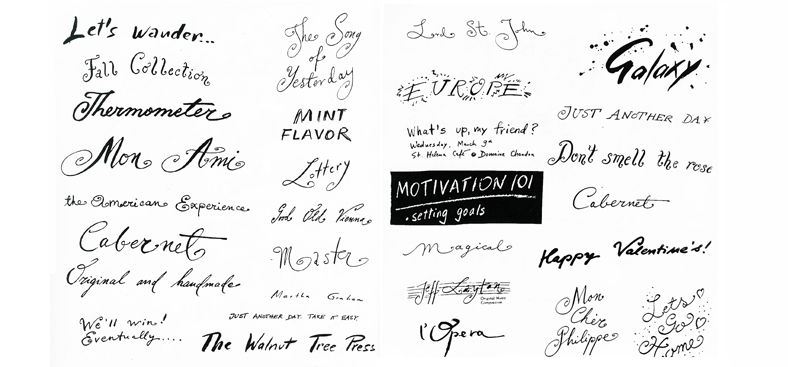 Let's wander...
Fall Collection
Thermometer
Mon Ami
the American Experience
Cabernet
Original and handmade
We'll win!
Eventually....
The Song
of
Yesterday
MINT
FLAVOR
Lottery
Good Old Vienna
Master
Martha Graham
JUST ANOTHER DAY. TAKE IT EASY.
The Walnut Tree Press
Lord St. John
EUROPE
What's up, my friend?
Wednesday, March 3rd
St. Helena Café @ Domaine Chandon
MOTIVATION 101
• setting goals
Magical
Jeff Layton
Original Music
Composition
l'Opera
Galaxy
JUST ANOTHER DAY
Don't smell the rose
Cabernet
Happy Valentine's!
Mon
Cher
Philippe
Lets
Go
Home